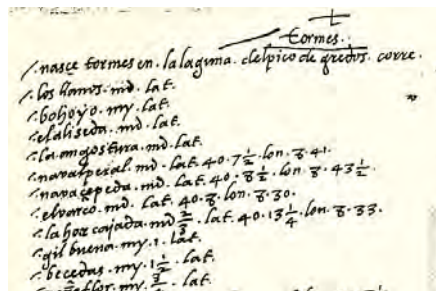 tormes.
/. nasçe tormes en. la laguna. del pico de gredos. corre.
/. los llanos. md. lat.
/. bohoyo. my. lat.
/. el aliseda. md. lat.
/. la angostura. md. lat.
/. navalperal. md. lat. 40. 7 1/2. lon. 8. 41.
/. navaçepeda. md. lat. 40. 8 1/2. lon. 8. 43 1/2.
/. el varco. md. lat. 40. 8. lon. 8. 30.
/. la hor cajada. md 2/3. lat. 40. 13 1/4. lon. 8. 33.
/. gil buena. my. 1. lat.
/. becedas. my. 1 1/2. lat.
flor. my. lat.